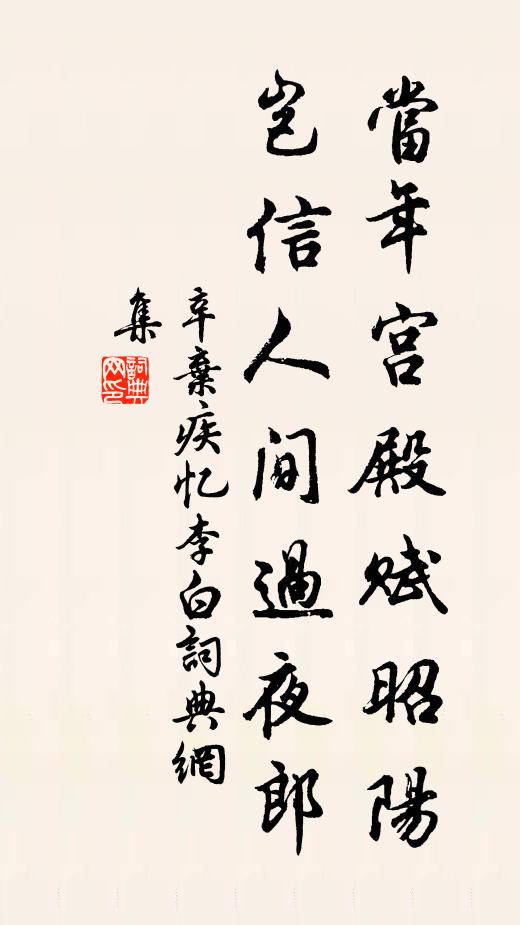 當年宮殿賦昭陽
豈信人间過夜郎
辛棄疾忆李白詞典網
集
詞典
网印